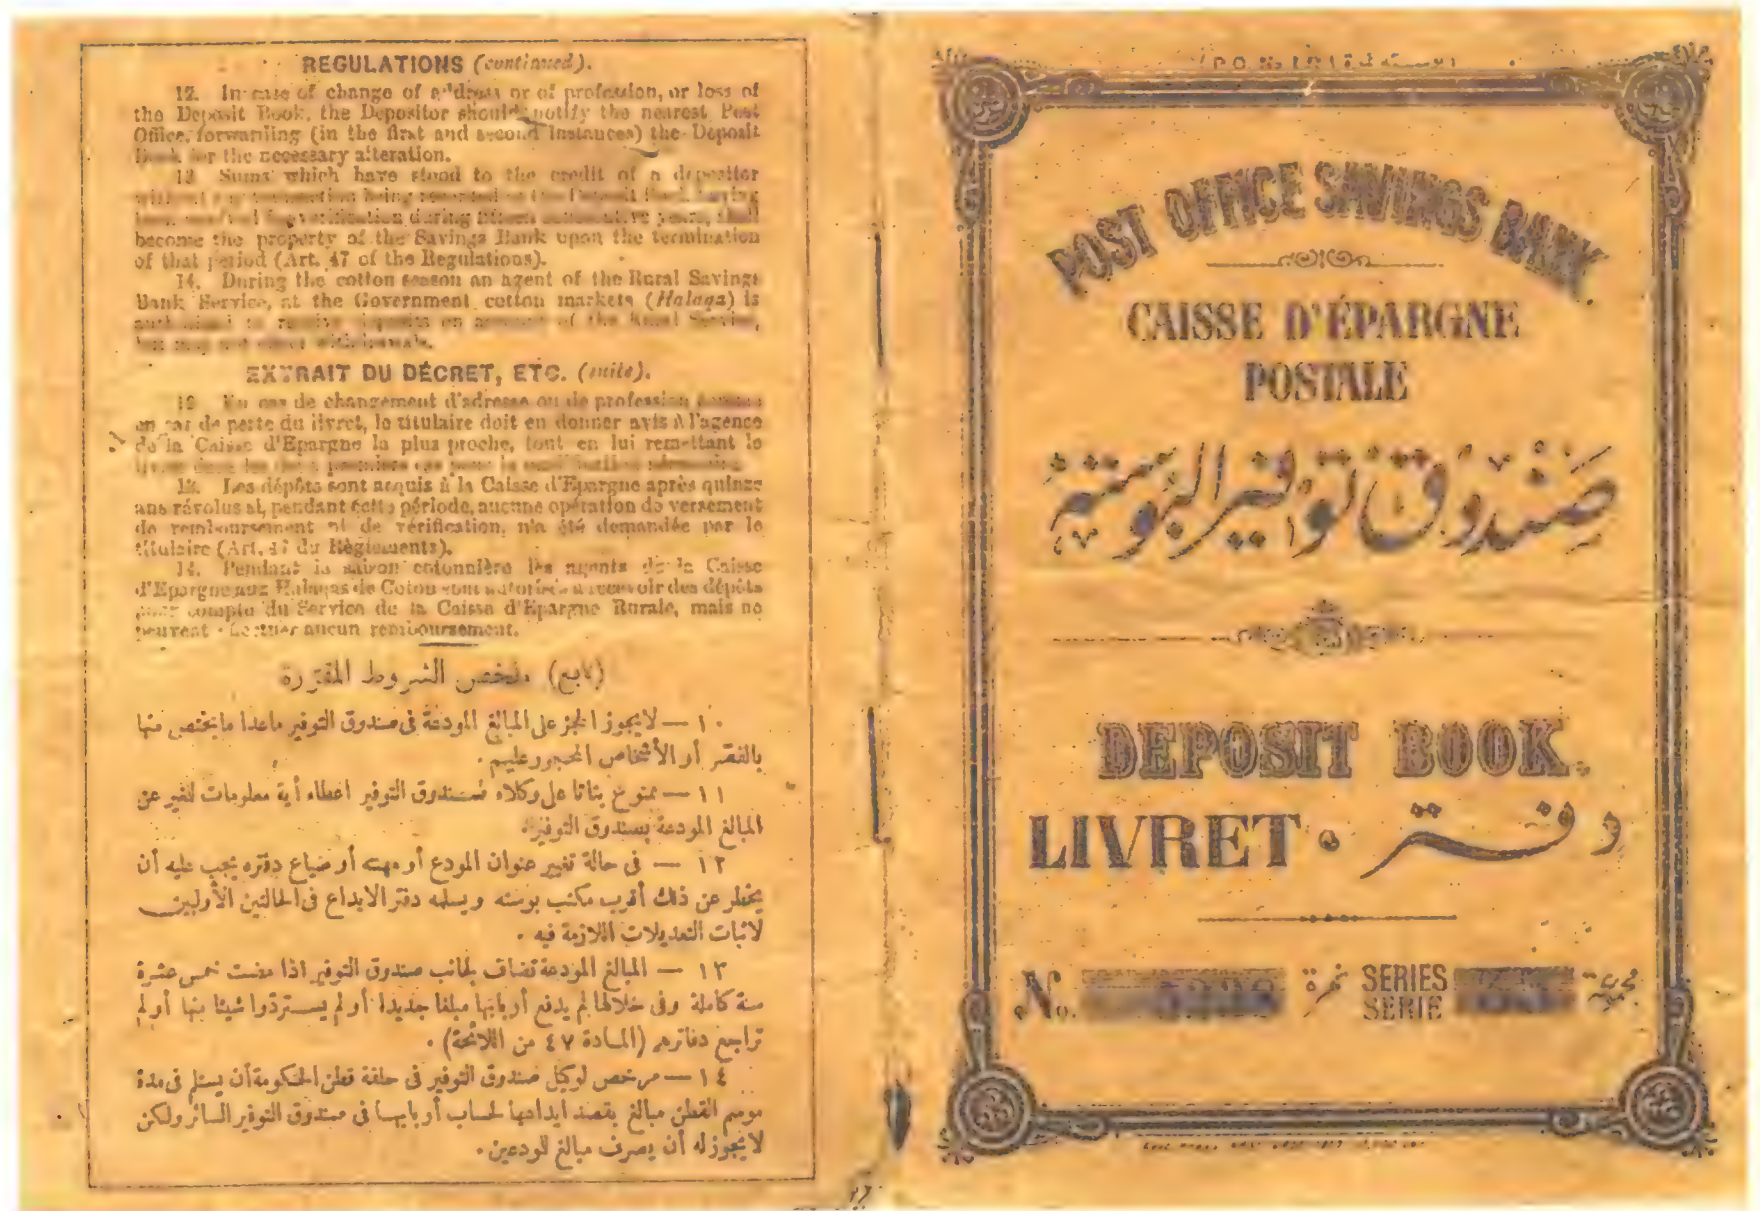 REGULATIONS (continued).
12. In case of change of address or of profession, or loss of
the Deposit Book, the Depositor should notify the nearest Post
Office, forwarding (in the first and second instances) the Deposit
Book for the necessary alteration.
13 Sums which have stood to the credit of a depositor
without any transaction being recorded in the Deposit Book having
been verification during fifteen consecutive years, shall
become the property of the Savings Bank upon the termination
of that period (Art. 47 of the Regulations).
14. During the cotton season an agent of the Rural Savings
Bank Service, at the Government cotton markets (Halaqa) is
authorised to receive deposits on account of the Rural Service,
but may not effect withdrawals.
EXTRAIT DU DÉCRET, ETC. (suite).
12 En cas de changement d'adresse ou de profession
en cas de perte du livret, le titulaire doit en donner avis à l'agence
de la Caisse d'Epargne la plus proche, tout en lui remettant le
livret dans les deux premiers cas pour la modification nécessaire.
13. Les dépôts sont acquis à la Caisse d'Epargne après quinze
ans révolus si, pendant cette période, aucune opération de versement
de remboursement ni de vérification, n'a été demandée par le
titulaire (Art. 47 du Règlements).
14. Pendant la saison cotonnière les agents de la Caisse
d'Epargne aux Halaqas de Coton sont autorisés à recevoir des dépôts
pour compte du Service de la Caisse d'Epargne Rurale, mais ne
peuvent effectuer aucun remboursement.
(تابع) ملخص الشروط المقررة
١٠ — لا يجوز الحجز على المبالغ المودعة فى صندوق التوفير ماعدا ما يختص منها
بالقصّر أو الأشخاص المحجور عليهم .
١١ — ممنوع بتاتا على وكلاء صندوق التوفير اعطاء أية معلومات للغير عن
المبالغ المودعة بصندوق التوفير.
١٢ — فى حالة تغيير عنوان المودع أو مهنته أو ضياع دفتره يجب عليه أن
يخطر عن ذلك أقرب مكتب بوسته ويسلمه دفتر الايداع فى الحالتين الأوليين
لاثبات التعديلات اللازمة فيه .
١٣ — المبالغ المودعة تضاف لجانب صندوق التوفير اذا مضت خمس عشرة
سنة كاملة وفى خلالها لم يدفع أربابها مبلغا جديدا أو لم يستردّوا شيئا منها أو لم
تراجع دفاترهم (المادة ٤٧ من اللائحة) .
١٤ — مرخص لوكيل صندوق التوفير فى حلقة قطن الحكومة أن يستلم فى مدة
موسم القطن مبالغ بقصد ايداعها لحساب أربابها فى صندوق التوفير السائر ولكن
لا يجوز له أن يصرف مبالغ للمودعين .
POST OFFICE SAVINGS BANK
CAISSE D'ÉPARGNE
POSTALE
صَنْدُوق تَوفير البُوسْتَة
DEPOSIT BOOK.
LIVRET · دفتر
No. نمرة SERIES
SERIE